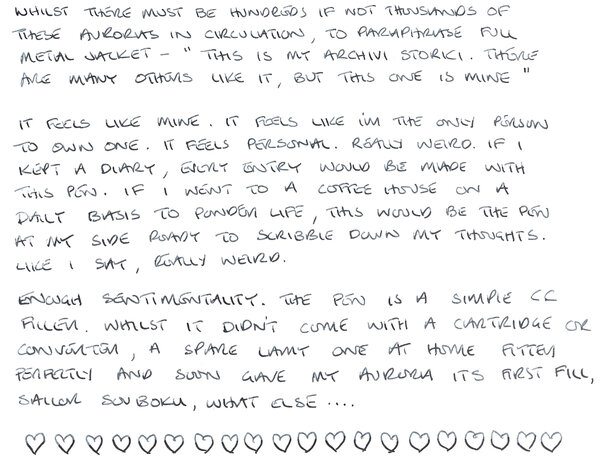 WHILST THERE MUST BE HUNDREDS IF NOT THOUSANDS OF
THESE AURORAS IN CIRCULATION, TO PARAPHRASE FULL
METAL JACKET - "THIS IS MY ARCHIVI STORICI. THERE
ARE MANY OTHERS LIKE IT, BUT THIS ONE IS MINE"
IT FEELS LIKE MINE. IT FEELS LIKE I'M THE ONLY PERSON
TO OWN ONE. IT FEELS PERSONAL. REALLY WEIRD. IF I
KEPT A DIARY, EVERY ENTRY WOULD BE MADE WITH
THIS PEN. IF I WENT TO A COFFEE HOUSE ON A
DAILY BASIS TO PONDER LIFE, THIS WOULD BE THE PEN
AT MY SIDE READY TO SCRIBBLE DOWN MY THOUGHTS.
LIKE I SAY, REALLY WEIRD.
ENOUGH SENTIMENTALITY. THE PEN IS A SIMPLE CC
FILLER. WHILST IT DIDN'T COME WITH A CARTRIDGE OR
CONVERTER, A SPARE LAMY ONE AT HOME FITTED
PERFECTLY AND SOON GAVE MY AURORA ITS FIRST FILL,
SAILOR SOUBOKU, WHAT ELSE ....